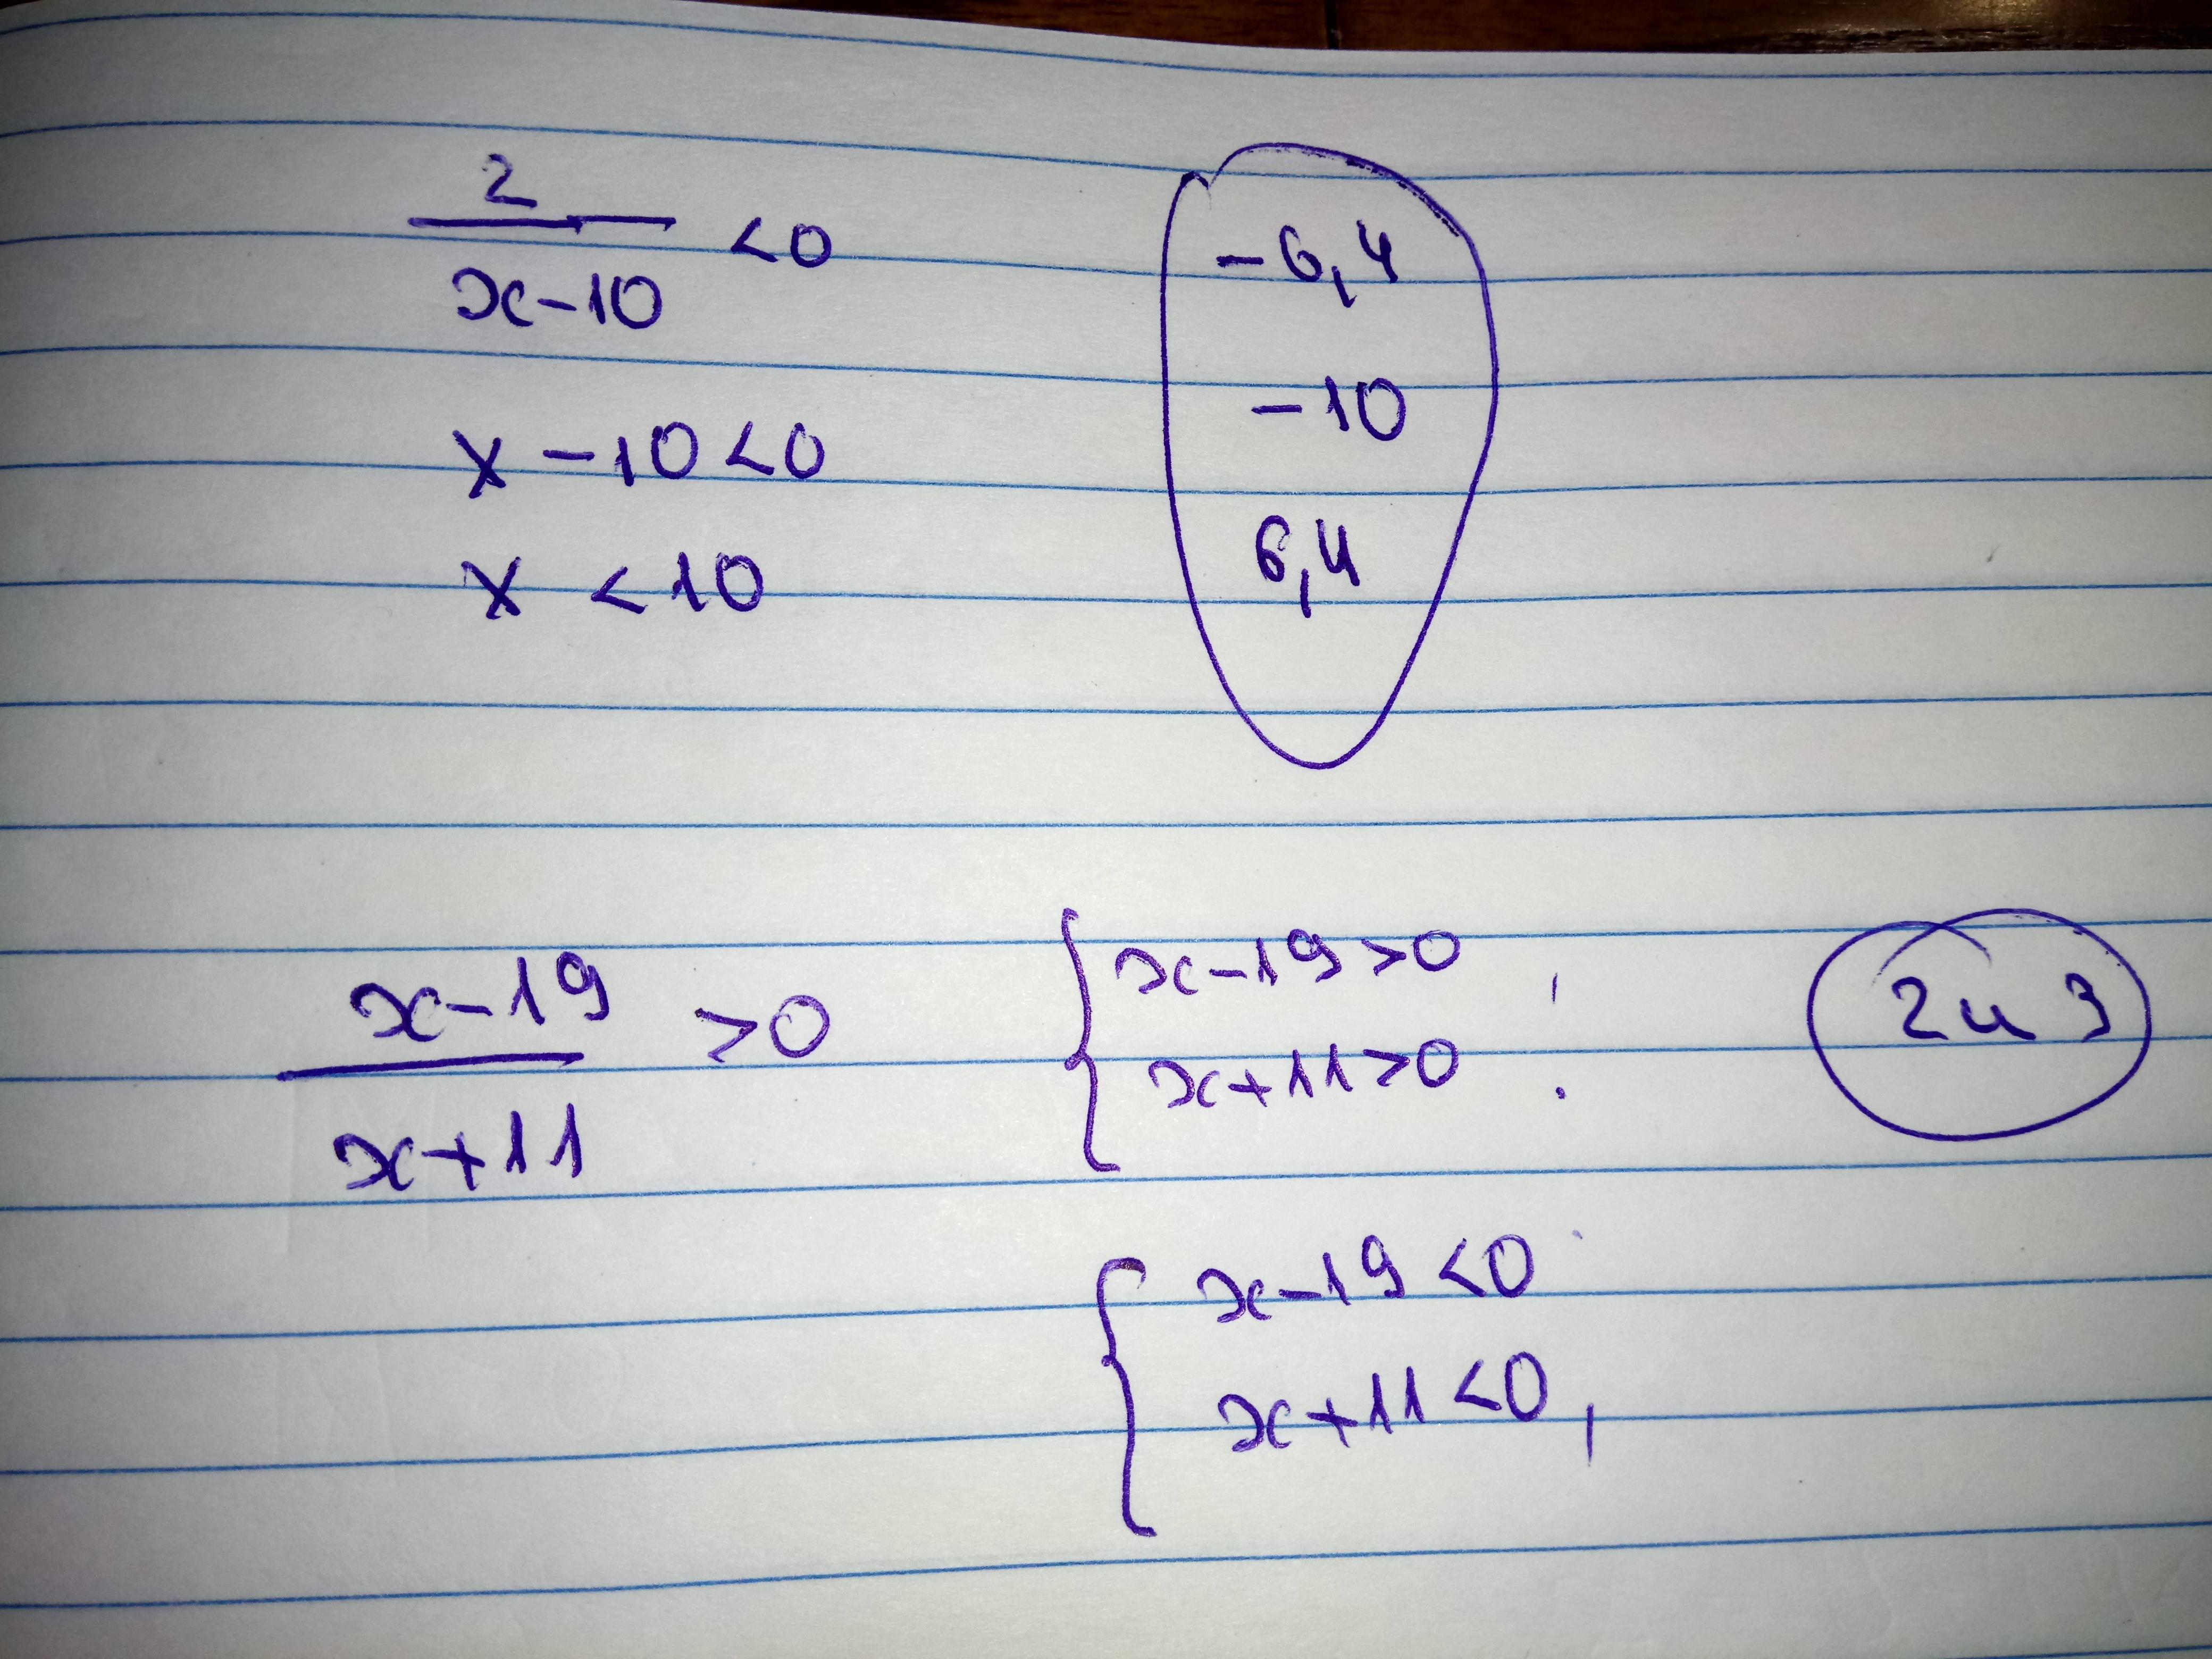 2
x-10 <0
x-10<0
x <10
-6,4
-10
6,4
x-19
x+11 >0
{ x-19>0
x+11>0 .
2и3
{ x-19<0
x+11<0,